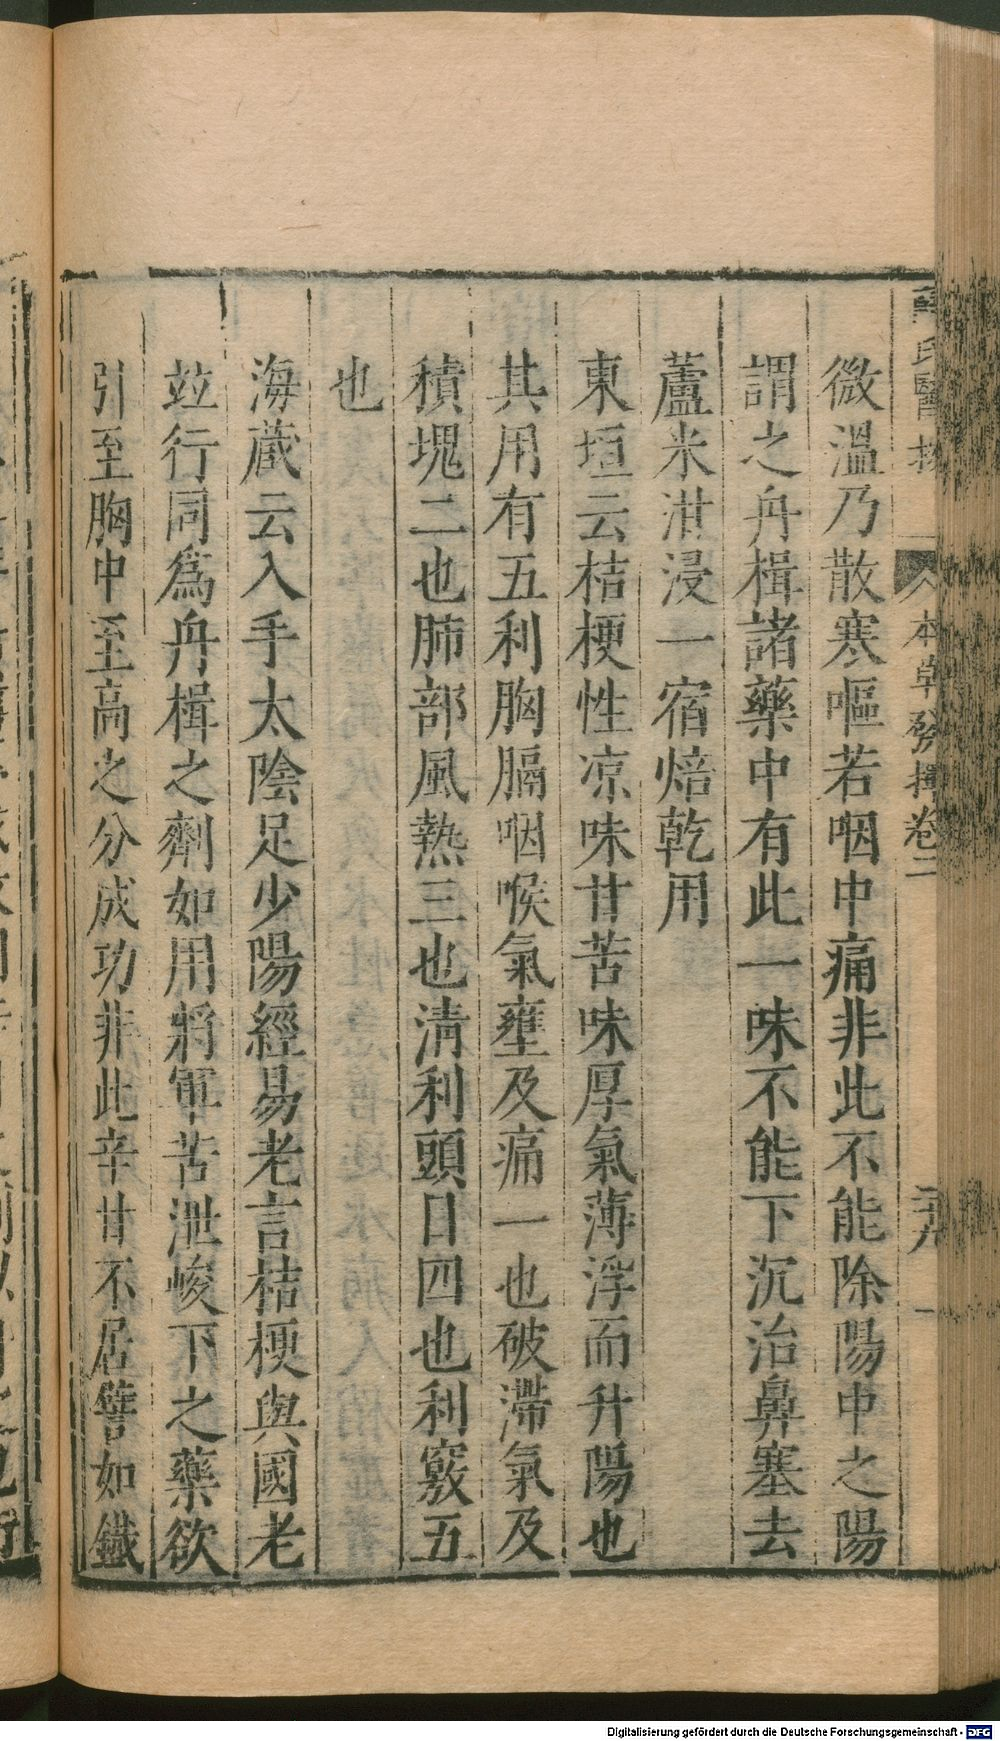 薛氏醫按 本草發揮卷二 二十八
微溫乃散寒嘔若咽中痛非此不能除陽中之陽
謂之舟楫諸藥中有此一味不能下沉治鼻塞去
蘆米泔浸一宿焙乾用
東垣云桔梗性凉味甘苦味厚氣薄浮而升陽也
其用有五利胸膈咽喉氣壅及痛一也破滯氣及
積塊二也肺部風熱三也淸利頭目四也利竅五
也
海藏云入手太陰足少陽經易老言桔梗與國老
竝行同爲舟楫之劑如用將軍苦泄峻下之藥欲
引至胸中至高之分成功非此辛甘不居譬如鐵
Digitalisierung gefördert durch die Deutsche Forschungsgemeinschaft - DFG